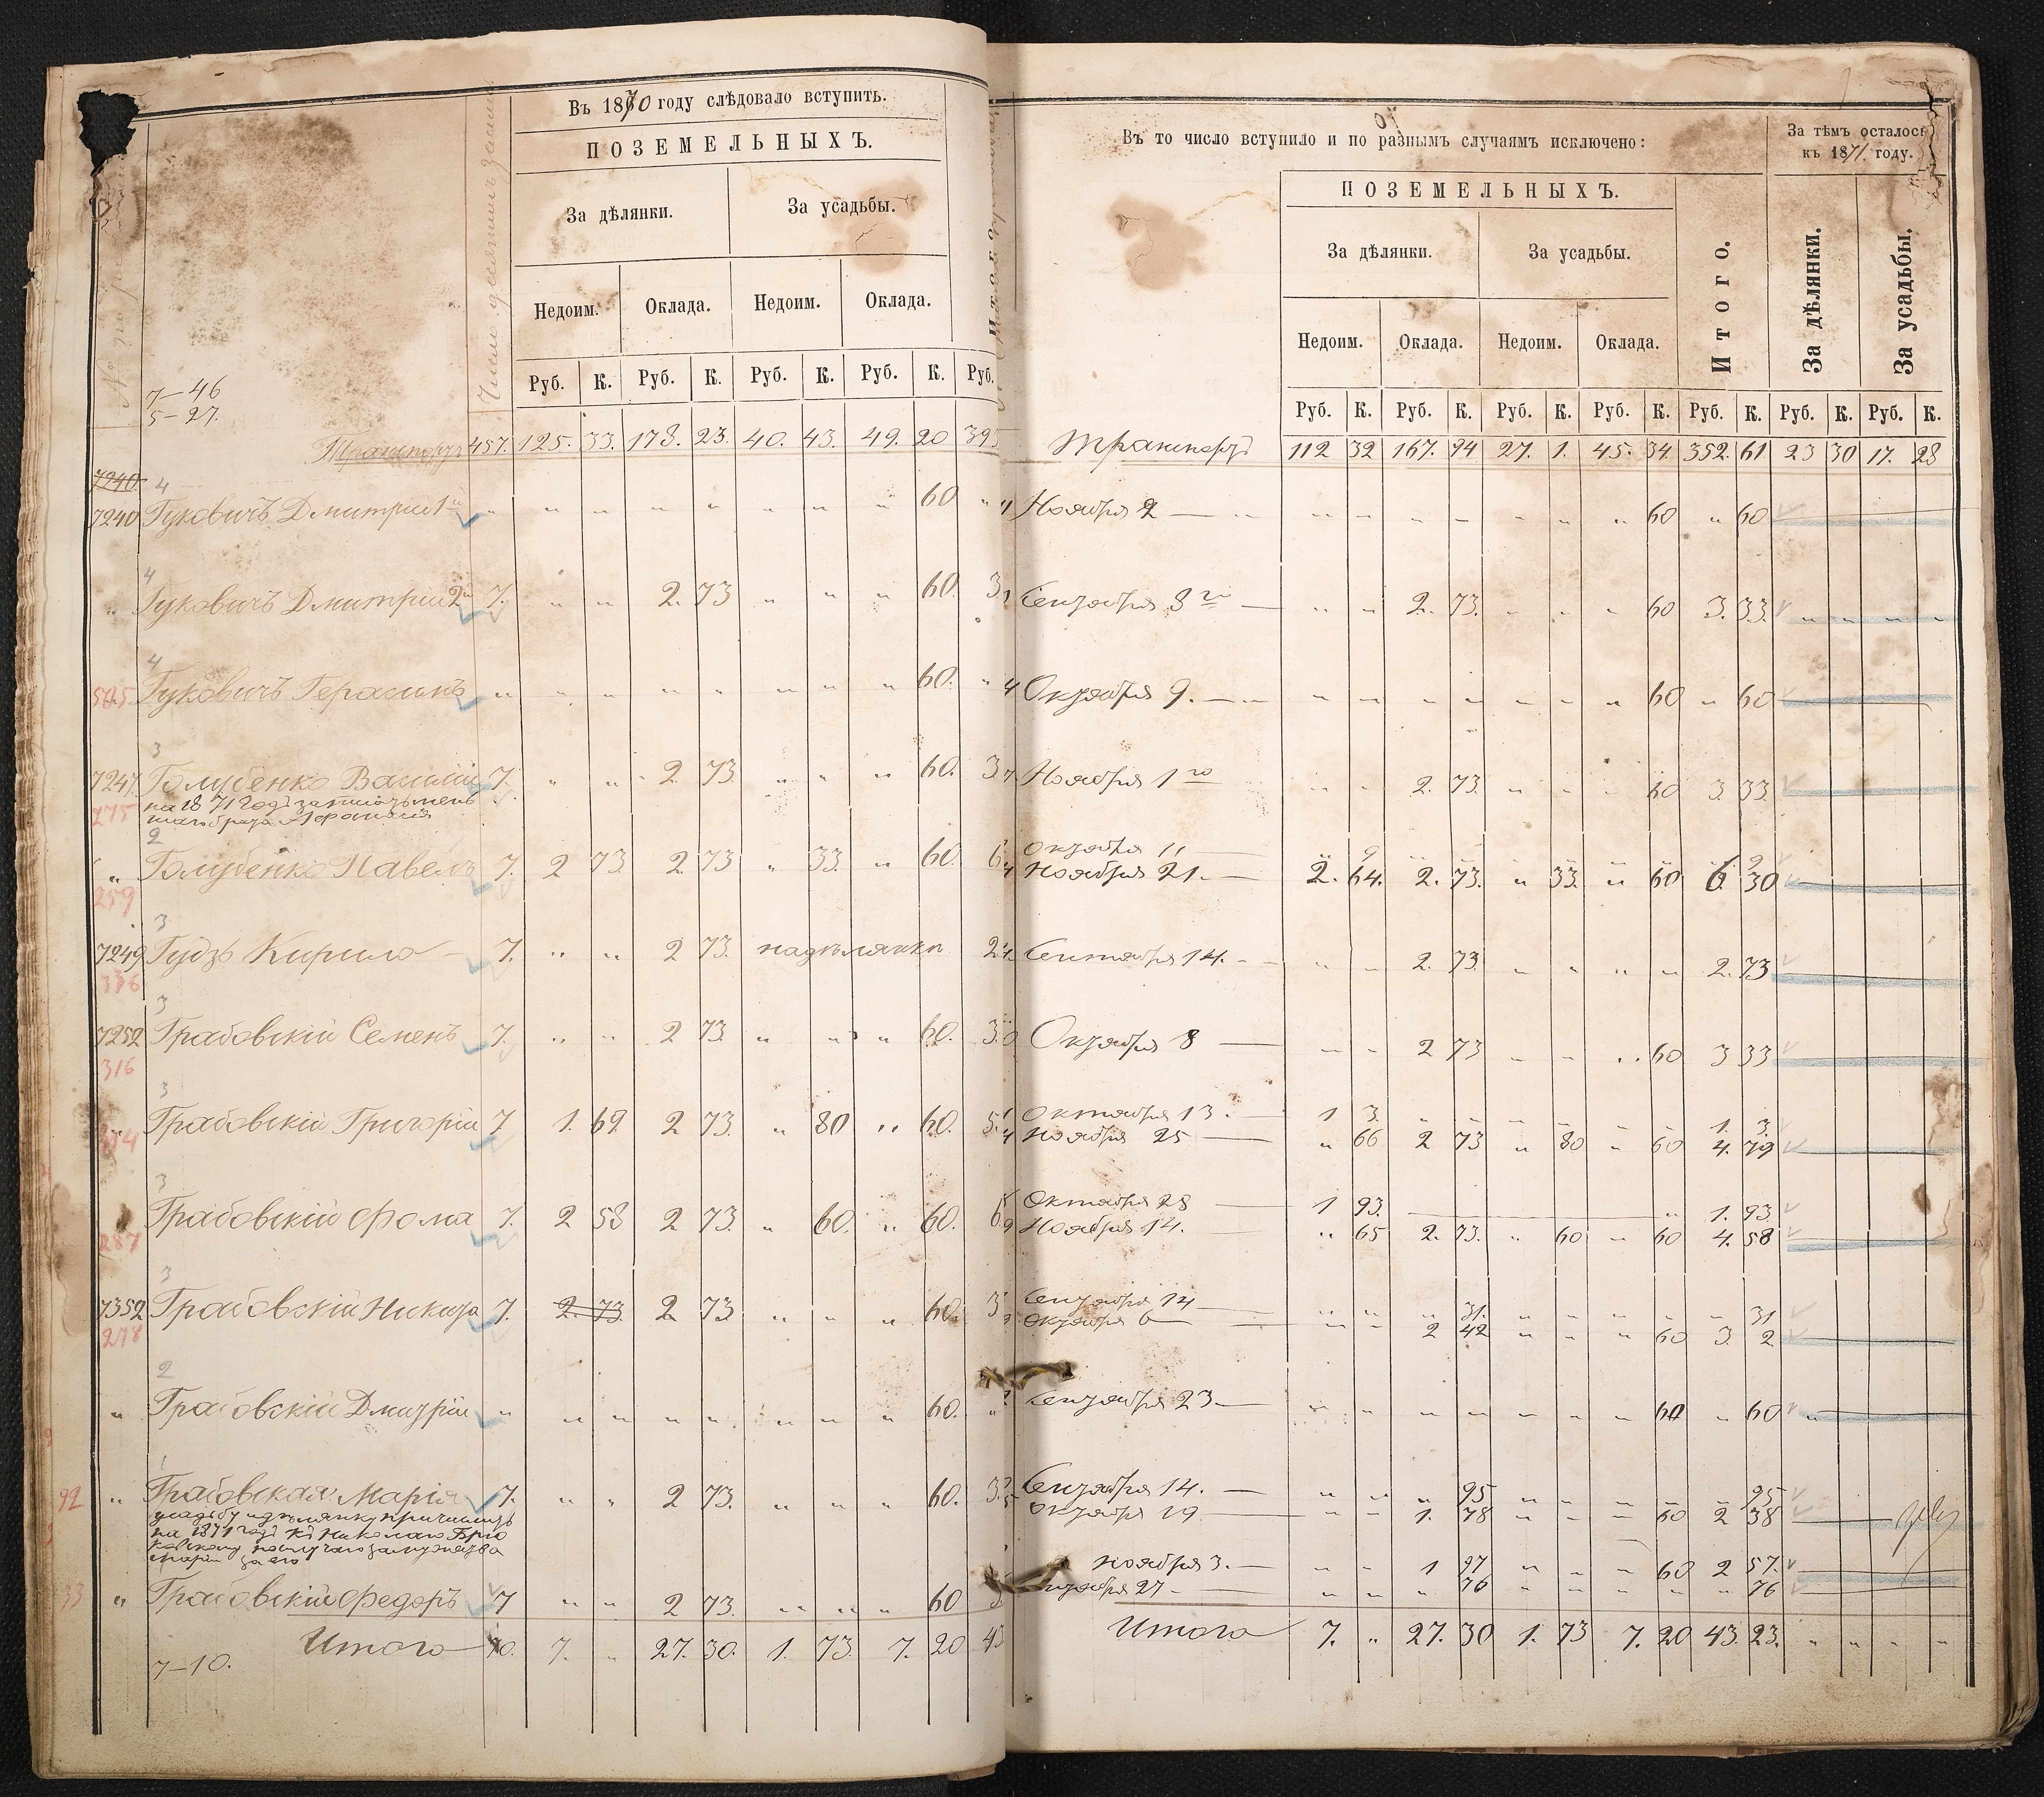 Въ 1870 году слѣдовало вступить.
ПОЗЕМЕЛЬНЫХЪ.
За дѣлянки. За усадьбы.
Недоим. Оклада. Недоим. Оклада.
Руб. К. Руб. К. Руб. К. Руб. К. Руб.
7–46
5–27.
Транспортъ 457. 125. 33. 178. 23. 40. 43. 49. 20 395
7240 4
7240 Гуковичъ Дмитрій 1й " " " " " " " " 60 "
4
" Гуковичъ Дмитрій 2й 7. " " 2. 73 " " " 60. 3
4
505. Гуковичъ Герасимъ " " " " " " " " 60. "
3
7247 Голубенко Василій 7. " " 2 73 " " " 60. 3
275 на 1871 годъ
брата Афанасія
2
" Голубенко Павелъ 7. 2 73 2 73 " 33. " 60. 6
259
3
7249 Гудзь Кирило 7. " " 2 73. надѣлянки 2
336
3
7252 Грабовскій Семенъ 7. " " 2 73 " " " 60. 3
316
3
" Грабовскій Григорій 7 1. 69. 2 73. " 80 " 60. 5
3
Грабовскій Фома 7. 2 58 2 73. " 60. " 60. 6
287
3
7352 Грабовскій Никита 7. 2. 73 2 73 " " " 60. 3
278
2
" Грабовскій Дмитрій " " " " " " " " 60. "
1
92 " Грабовская Марія 7. " " 2 73. " " " 60. 3
усадьбу и дѣлянку причислить
на 1871 годъ къ Николаю
по случаю замужества
Маріи за его
33 " Грабовскій Федоръ 7 " " 2 73. " " " 60
Итого 70. 7. " 27. 30. 1. 73. 7. 20 43
7–10.
Въ то число вступило и по разнымъ случаямъ исключено:
За тѣмъ осталось
къ 1871 году.
ПОЗЕМЕЛЬНЫХЪ.
Итого.
За дѣлянки.
За усадьбы.
За дѣлянки. За усадьбы.
Недоим. Оклада. Недоим. Оклада.
Руб. К. Руб. К. Руб. К. Руб. К. Руб. К. Руб. К. Руб. К.
Транспортъ 112 32 167. 94 27. 1. 45. 34. 352. 61 23 30 17. 28
Ноября 2 " " " " " " " 60 " 60
Сентября 3го " " 2. 73. " " " 60 3. 33.
Октября 9. " " " " " " " 60 " 60
Ноября 1го " " 2. 73. " " " 60 3. 33
Октября 11 " 9 " " " " " " " 9
Ноября 21. 2. 64. 2. 73. " 33. " 60 6. 30
Сентября 14. " " 2. 73. " " " " 2. 73
Октября 8 " " 2 73 " " " 60 3 33
Октября 13. 1 3. " " " " " " 1. 3.
Ноября 25 " 66 2 73 " 80 " 60 4. 79
Октября 28 1 93. " 1. 93
Ноября 14. " 65 2. 73. " 60 " 60 4. 58
Сентября 14 " " " 31. " " " " " 31
Октября 6 " " 2 42 " " " 60 3. 2
Сентября 23 " " " " " " " 60 " 60 "
Сентября 14. " " " 95 " " " " " 95
Октября 19 " " 1. 78 " " " 60 2 38
Ноября 3. " " 1 97 " " " 60 2 57.
27 " " " 76 " " " " " 76
Итого 7. " 27. 30 1. 73 7. 20 43. 23. " " " "